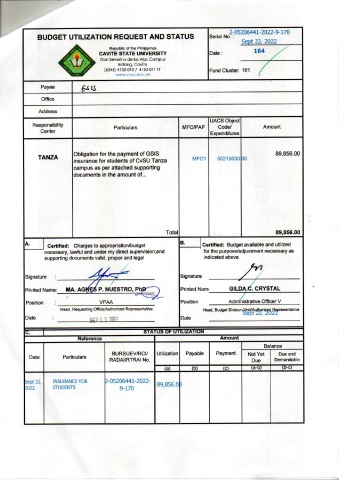 BUDGET UTILIZATION REQUEST AND STATUS
Republic of the Philippines
CAVITE STATE UNIVERSITY
Don Severino delas Alas Campus
Indang, Cavite
www.cvsu.edu.ph
Serial No.: 2-05206441-2022-9-170
Sept 22, 2022
Date : 164
Fund Cluster: 101
Payee GSIS
Office
Address
Responsibility Center Particulars MFO/PAP UACS Object Code/ Expenditures Amount
TANZA Obligation for the payment of GSIS MFO1 50215030 00 89,856.00
insurance for students of CvSU Tanza
campus as per attached supporting
documents in the amount of...
Total 89,856.00
A. Certified: Charges to appropriation/budget
necessary, lawful and under my direct supervision;and
supporting documents valid, proper and legal
Signature :
Printed Name: MA. AGNES P. NUESTRO, PhD
Position : VPAA
Head, Requesting Office/Authorized Representative
Date :
B. Certified: Budget available and utilized
for the purpose/adjustment necessary as
indicated above
Signature
Printed Name GILDA C. CRYSTAL
Position Administrative Officer V
Head, Budget Division/Unit/Authorized Representative
Date Sept 22, 2022
C. STATUS OF UTILIZATION
Reference Amount
Date Particulars BURS/JEV/RCI/ RADAI/RTRAI No. Utilization Payable Payment Balance
Not Yet Due Due and Demandable
(a) (b) (c) (a-b) (b-c)
Sept 22, 2022 INSURANCE FOR STUDENTS 2-05206441-2022-9-170 89,856.00